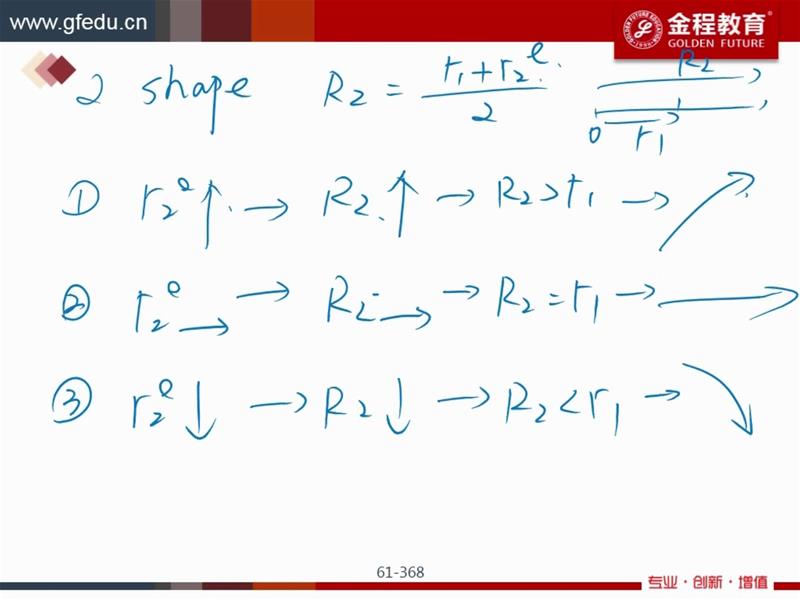 www.gfedu.cn
金程教育
GOLDEN FUTURE
2 shape R₂ = (r₁ + r₂ᵉ)/2
R₂
0 r₁
① r₂ᵉ ↑ → R₂ ↑ → R₂ > r₁ → ↗
② r₂ᵉ → → R₂ → → R₂ = r₁ → →
③ r₂ᵉ ↓ → R₂ ↓ → R₂ < r₁ → ↘
61-368
专业·创新·增值